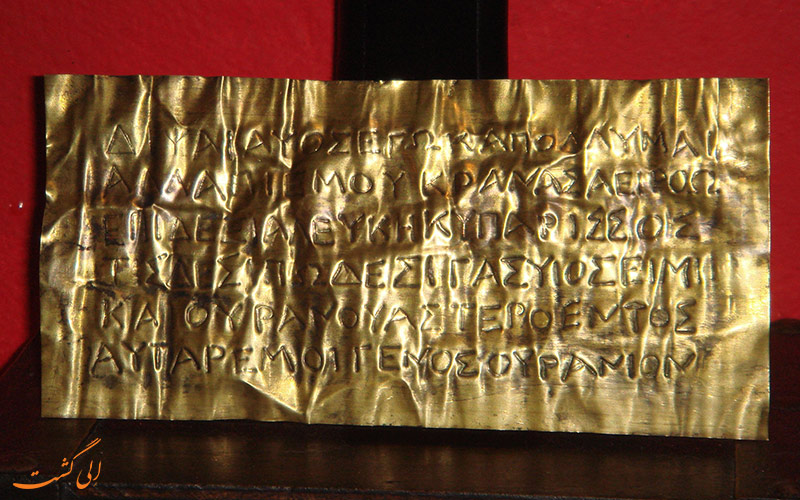 ΔΙΨΑΙΑΥΟΣΕΓΩΚΑΠΟΛΛΥΜΑΙ
ΑΛΛΑΠΙΕΜΟΥΚΡΑΝΑΣΑΕΙΡΟΩ
ΕΠΙΔΕΞΙΑΛΕΥΚΗΚΥΠΑΡΙΣΣΟΣ
ΤΙΣΔΕΣΙΠΩΔΕΣΙΓΑΣΥΙΟΣΕΙΜΙ
ΚΑΙΟΥΡΑΝΟΥΑΣΤΕΡΟΕΝΤΟΣ
ΑΥΤΑΡΕΜΟΙΓΕΝΟΣΟΥΡΑΝΙΟΝ
الی گشت